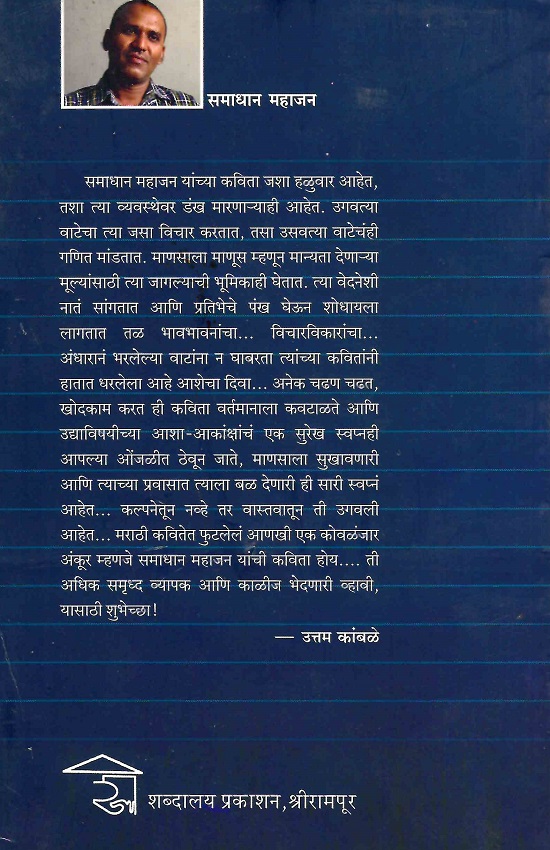 समाधान महाजन
समाधान महाजन यांच्या कविता जशा हळुवार आहेत,
तशा त्या व्यवस्थेवर डंख मारणाऱ्याही आहेत. उगवत्या
वाटेचा त्या जसा विचार करतात, तसा उसवत्या वाटेचंही
गणित मांडतात. माणसाला माणूस म्हणून मान्यता देणाऱ्या
मूल्यांसाठी त्या जागल्याची भूमिकाही घेतात. त्या वेदनेशी
नातं सांगतात आणि प्रतिभेचे पंख घेऊन शोधायला
लागतात तळ भावभावनांचा... विचारविकारांचा...
अंधारानं भरलेल्या वाटांना न घाबरता त्यांच्या कवितांनी
हातात धरलेला आहे आशेचा दिवा... अनेक चढण चढत,
खोदकाम करत ही कविता वर्तमानाला कवटाळते आणि
उद्याविषयीच्या आशा-आकांक्षांचं एक सुरेख स्वप्नही
आपल्या ओंजळीत ठेवून जाते, माणसाला सुखावणारी
आणि त्याच्या प्रवासात त्याला बळ देणारी ही सारी स्वप्नं
आहेत... कल्पनेतून नव्हे तर वास्तवातून ती उगवली
आहेत... मराठी कवितेत फुटलेलं आणखी एक कोवळंजार
अंकूर म्हणजे समाधान महाजन यांची कविता होय.... ती
अधिक समृध्द व्यापक आणि काळीज भेदणारी व्हावी,
यासाठी शुभेच्छा!
— उत्तम कांबळे
शब्दालय प्रकाशन,श्रीरामपूर